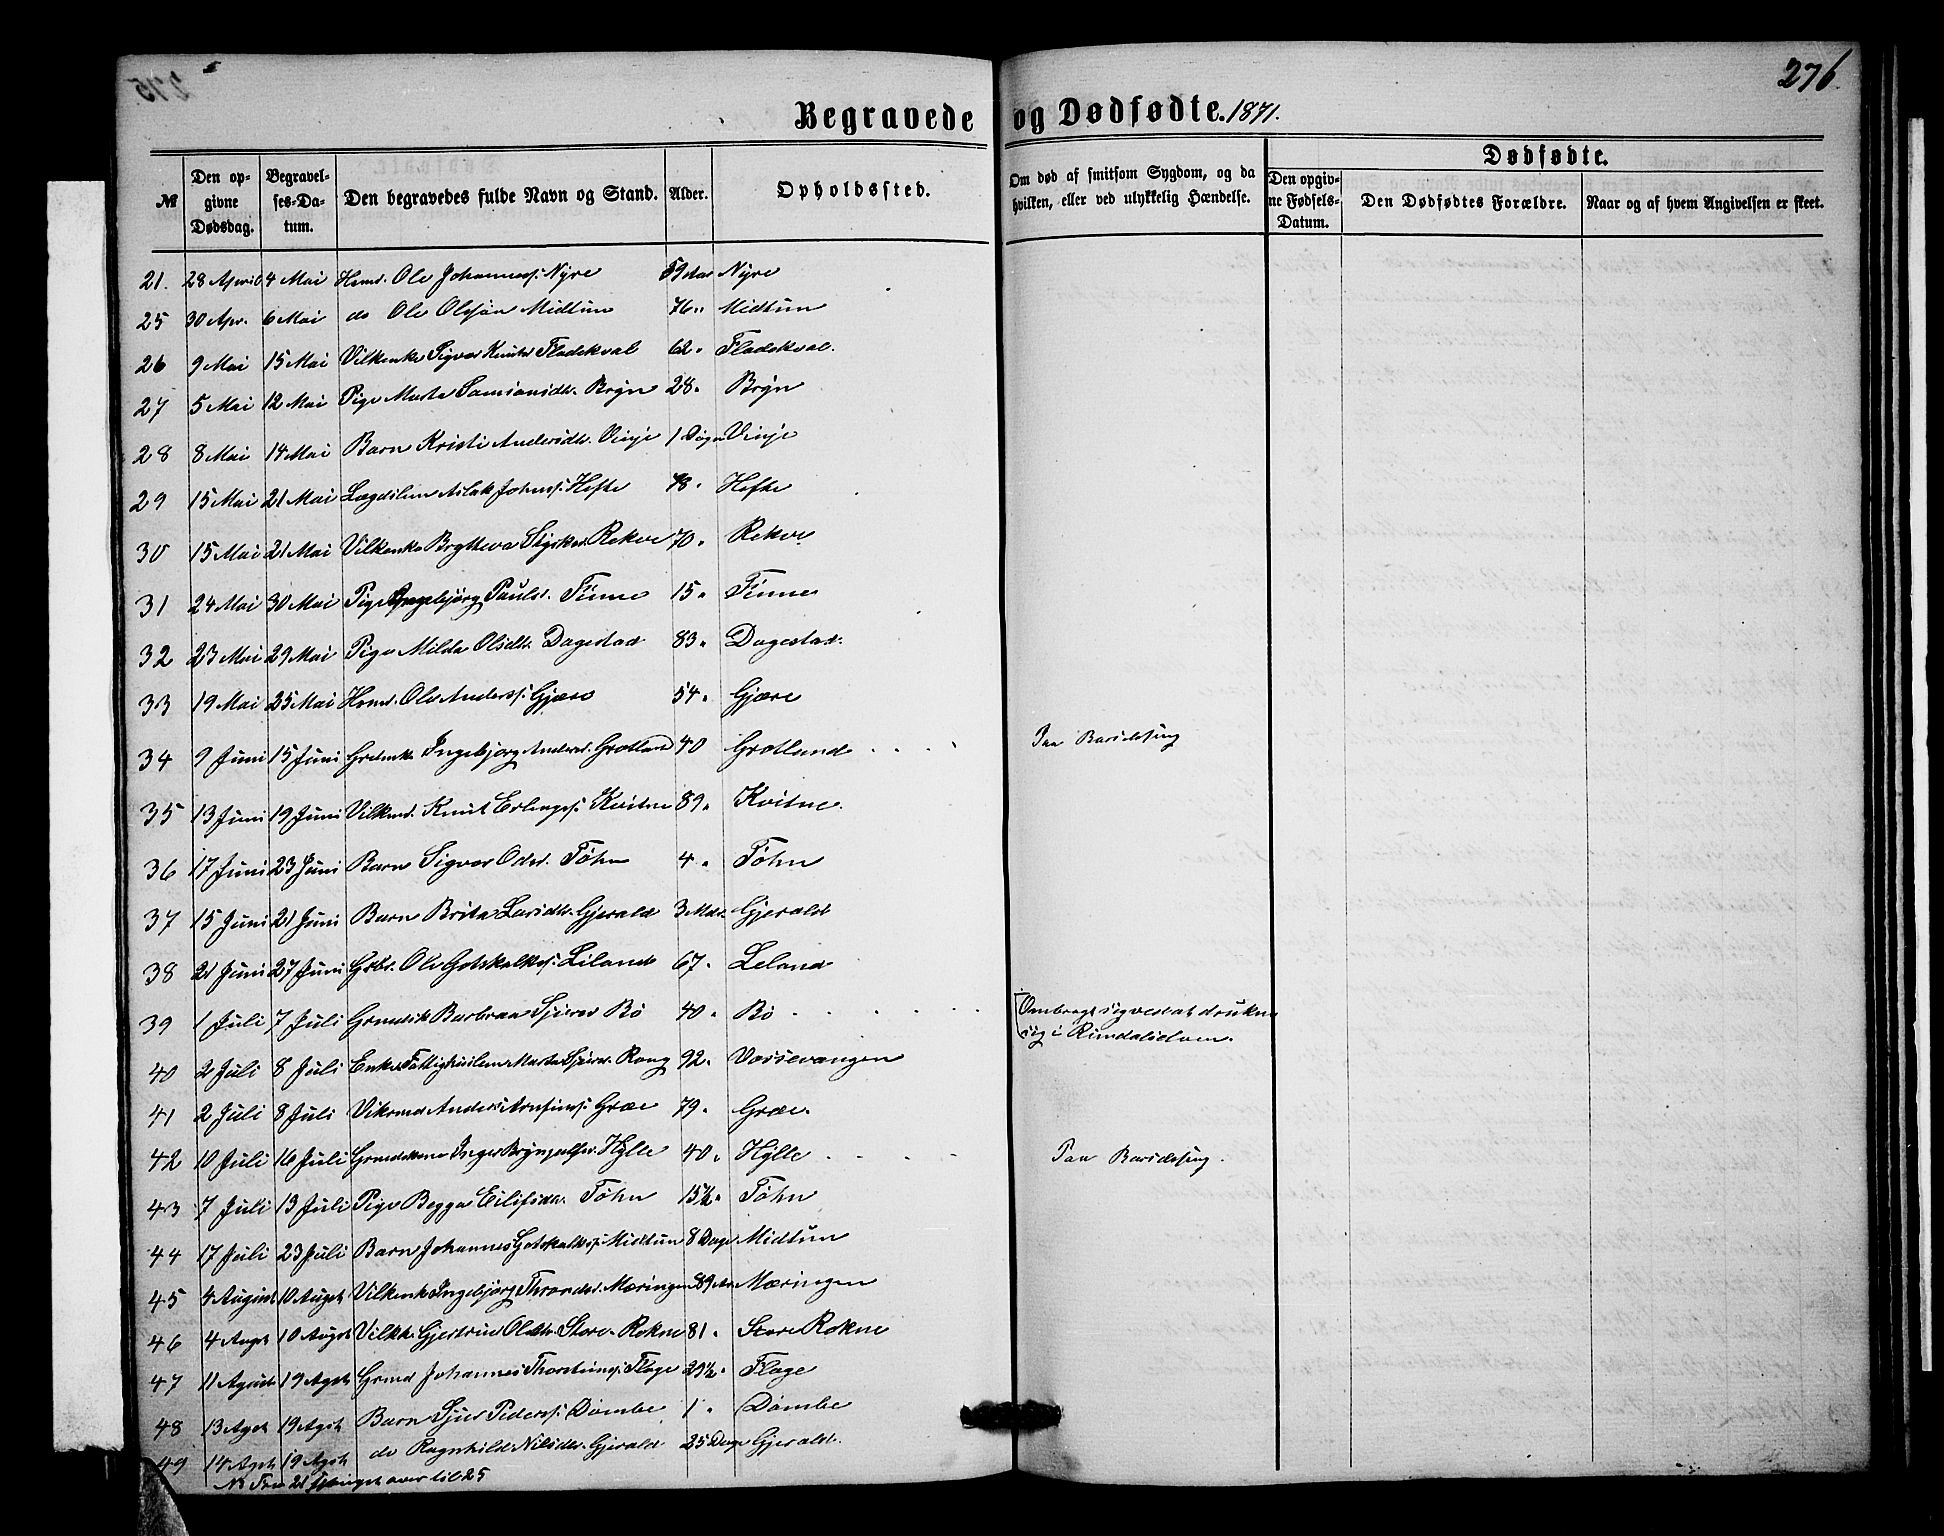 276
Begravede og Dødfødte. 1871.
№ Den opgivne Dødsdag. Begravelses-Datum. Den begravedes fulde Navn og Stand. Alder. Opholdssted. Om død af smitsom Sygdom, og da hvilken, eller ved ulykkelig Hændelse. Dødfødte. Den opgivne Fødsels-Datum. Den Dødfødtes Forældre. Naar og af hvem Angivelsen er skeet.
21. 28 April 4 Mai Ole Johanness. Nyre 59 Aar Nyre
25 30 Apr. 6 Mai do Ole Olsøn Midtun 76 " Midtun
26 9 Mai 15 Mai Vilkenke Sigvor Knutsd. Fladekval 62 " Fladekval.
27 5 Mai 12 Mai Pige Marta Brÿn 28 " Brÿn
28 8 Mai 14 Mai Barn Kristi Andersdtr. Vinje 1 Døgn Vinje
29 15 Mai 21 Mai Lægdslem Aslak Johnss. Hefte 78 " Hefte
30 15 Mai 21 Mai Vilkenke Brytteva Rekve 70 " Rekve
31 24 Mai 30 Mai Pige Ingebjørg Paulsd. Finne 15 " Finne
32 23 Mai 29 Mai Pige Milda Olsdtr. Dagestad 83 " Dagestad.
33 19 Mai 25 Mai Ole Anderss. Gjære 54 " Gjære
34 9 Juni 15 Juni Ingebjørg Andersd. Grotland 40 Grotland . . . . Paa Barselseng
35 13 Juni 19 Juni Vilkmd. Knut Erlingss. Kvitne 89 " Kvitne.
36 17 Juni 23 Juni Barn Sigvor Odsd. Tøhn 4 " Tøhn
37 15 Juni 21 Juni Barn Brita Larsdtr. Gjerald 3 Mdr. Gjerald
38 21 Juni 27 Juni Ole Gotskalks. Liland 67 " Leland
39 1 Juli 7 Juli Barbraa Sjursd Bø 40 " Bø . . . . . Ombragt sig ved at drukne
sig i Rundalselven.
40 2 Juli 8 Juli Enke Fattighuslem Marta Sjursd. Rong 92 " Vossevangen
41 2 Juli 8 Juli Anders Arnfinns. Græe 79 " Græe.
42 10 Juli 16 Juli Inger Brynjulfsd. Hÿlle 40 " Hÿlle . . . . Paa Barselseng.
43 7 Juli 13 Juli Pige Begga Eilifsdtr. Tøhn 15½ " Tøhn
44 17 Juli 23 Juli Barn Johannes Gotskalkss. Midtun 8 Dage Midtun
45 4 August 10 Augst Vilkenke Ingebjørg Throndsd. Mæringen 89 Aar Mæringen
46 4 Augst 10 Augst Vilkk. Gjertrud Olsdtr. Store-Rokne 81 " Store Rokne
47 11 Agust 19 Agst Grmd Johannes Thorsteinss. Fløge 29½ " Fløge
48 13 Agst 19 Agst Barn Sjur Pederss. Dømbe 1 " Dømbe
49 14 Agst 19 Agst do Ragnhild Nilsdtr. Gjerald 25 Dage Gjerald.
No Fra 21 sprunget over til 25